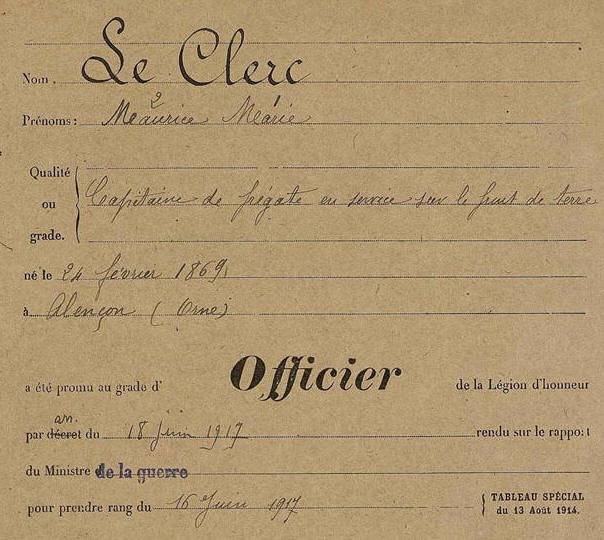 Nom. Le Clerc
2 1
Prénoms: Maurice Marie
Qualité
ou
grade.
Capitaine de frégate en service sur le front de terre
né le 24 février 1869
à Alençon (Orne)
a été promu au grade d' Officier de la Légion d'honneur
ar.
par décret du 18 Juin 1917 rendu sur le rapport
du Ministre de la guerre
pour prendre rang du 16 Juin 1917
TABLEAU SPÉCIAL
du 13 Août 1914.